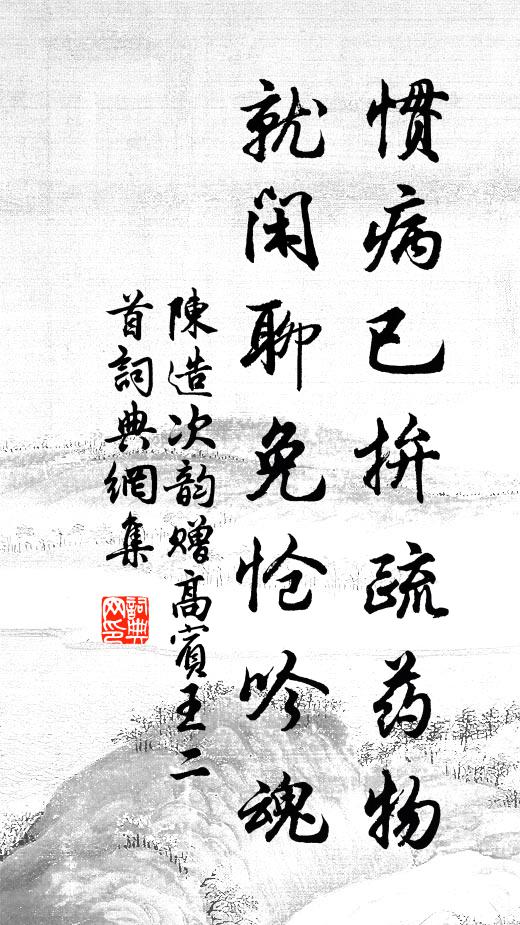 慣病已拚疏药物
就閑聊免怆吟魂
陳造次韵赠高賓王二
首詞典網集
詞典
网印